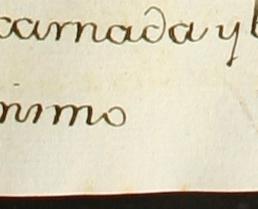 carnada y
nimo